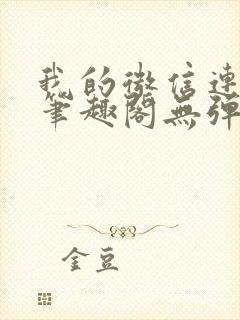 我的微信連
筆趣閣無彈
金豆